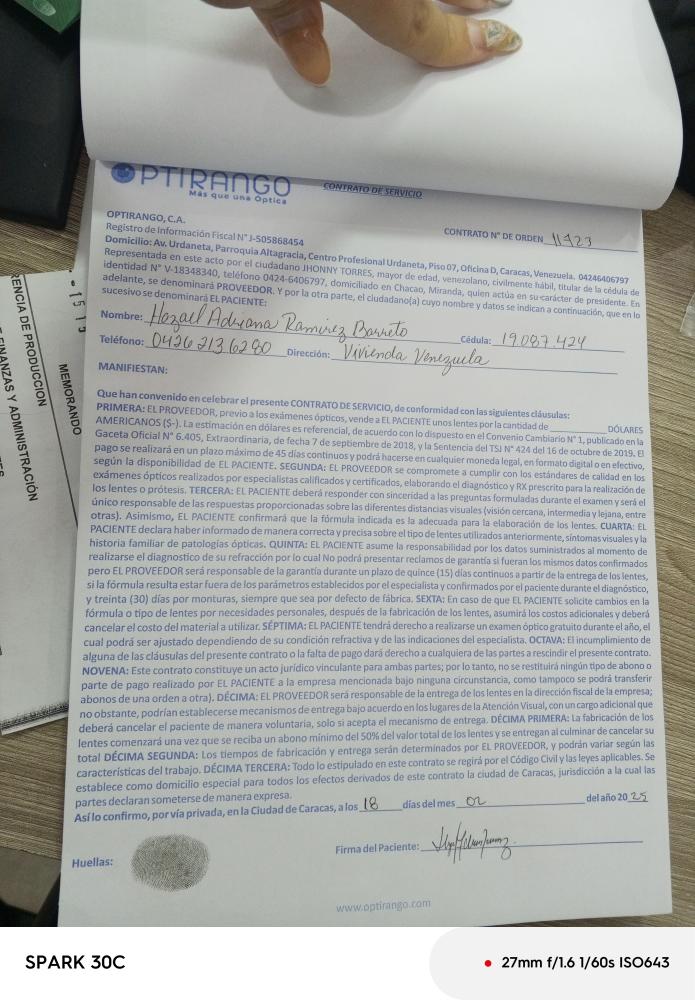 OPTIRANGO
Más que una Optica
CONTRATO DE SERVICIO
OPTIRANGO, C.A.
Registro de Información Fiscal N° J-505868454
CONTRATO N° DE ORDEN 11723
Domicilio: Av. Urdaneta, Parroquia Altagracia, Centro Profesional Urdaneta, Piso 07, Oficina D, Caracas, Venezuela. 04246406797
Representada en este acto por el ciudadano JHONNY TORRES, mayor de edad, venezolano, civilmente hábil, titular de la cédula de
identidad N° V-18348340, teléfono 0424-6406797, domiciliado en Chacao, Miranda, quien actúa en su carácter de presidente. En
adelante, se denominará PROVEEDOR. Y por la otra parte, el ciudadano(a) cuyo nombre y datos se indican a continuación, que en lo
sucesivo se denominará EL PACIENTE:
Nombre: Hezael Adriana Ramirez Barreto Cédula: 19.087.424
Teléfono: 0426 213 6280 Dirección: Vivienda Venezuela
MANIFIESTAN:
Que han convenido en celebrar el presente CONTRATO DE SERVICIO, de conformidad con las siguientes cláusulas:
PRIMERA: EL PROVEEDOR, previo a los exámenes ópticos, vende a EL PACIENTE unos lentes por la cantidad de ____________ DÓLARES
AMERICANOS ($-). La estimación en dólares es referencial, de acuerdo con lo dispuesto en el Convenio Cambiario N° 1, publicado en la
Gaceta Oficial N° 6.405, Extraordinaria, de fecha 7 de septiembre de 2018, y la Sentencia del TSJ N° 424 del 16 de octubre de 2019. El
pago se realizará en un plazo máximo de 45 días continuos y podrá hacerse en cualquier moneda legal, en formato digital o en efectivo,
según la disponibilidad de EL PACIENTE. SEGUNDA: EL PROVEEDOR se compromete a cumplir con los estándares de calidad en los
exámenes ópticos realizados por especialistas calificados y certificados, elaborando el diagnóstico y RX prescrito para la realización de
los lentes o prótesis. TERCERA: EL PACIENTE deberá responder con sinceridad a las preguntas formuladas durante el examen y será el
único responsable de las respuestas proporcionadas sobre las diferentes distancias visuales (visión cercana, intermedia y lejana, entre
otras). Asimismo, EL PACIENTE confirmará que la fórmula indicada es la adecuada para la elaboración de los lentes. CUARTA: EL
PACIENTE declara haber informado de manera correcta y precisa sobre el tipo de lentes utilizados anteriormente, síntomas visuales y la
historia familiar de patologías ópticas. QUINTA: EL PACIENTE asume la responsabilidad por los datos suministrados al momento de
realizarse el diagnostico de su refracción por lo cual No podrá presentar reclamos de garantía si fueran los mismos datos confirmados
pero EL PROVEEDOR será responsable de la garantía durante un plazo de quince (15) días continuos a partir de la entrega de los lentes,
si la fórmula resulta estar fuera de los parámetros establecidos por el especialista y confirmados por el paciente durante el diagnóstico,
y treinta (30) días por monturas, siempre que sea por defecto de fábrica. SEXTA: En caso de que EL PACIENTE solicite cambios en la
fórmula o tipo de lentes por necesidades personales, después de la fabricación de los lentes, asumirá los costos adicionales y deberá
cancelar el costo del material a utilizar. SÉPTIMA: EL PACIENTE tendrá derecho a realizarse un examen óptico gratuito durante el año, el
cual podrá ser ajustado dependiendo de su condición refractiva y de las indicaciones del especialista. OCTAVA: El incumplimiento de
alguna de las cláusulas del presente contrato o la falta de pago dará derecho a cualquiera de las partes a rescindir el presente contrato.
NOVENA: Este contrato constituye un acto jurídico vinculante para ambas partes; por lo tanto, no se restituirá ningún tipo de abono o
parte de pago realizado por EL PACIENTE a la empresa mencionada bajo ninguna circunstancia, como tampoco se podrá transferir
abonos de una orden a otra). DÉCIMA: EL PROVEEDOR será responsable de la entrega de los lentes en la dirección fiscal de la empresa;
no obstante, podrían establecerse mecanismos de entrega bajo acuerdo en los lugares de la Atención Visual, con un cargo adicional que
deberá cancelar el paciente de manera voluntaria, solo si acepta el mecanismo de entrega. DÉCIMA PRIMERA: La fabricación de los
lentes comenzará una vez que se reciba un abono mínimo del 50% del valor total de los lentes y se entregan al culminar de cancelar su
total DÉCIMA SEGUNDA: Los tiempos de fabricación y entrega serán determinados por EL PROVEEDOR, y podrán variar según las
características del trabajo. DÉCIMA TERCERA: Todo lo estipulado en este contrato se regirá por el Código Civil y las leyes aplicables. Se
establece como domicilio especial para todos los efectos derivados de este contrato la ciudad de Caracas, jurisdicción a la cual las
partes declaran someterse de manera expresa.
Así lo confirmo, por vía privada, en la Ciudad de Caracas, a los 18 días del mes 02 del año 2025
Huellas:
Firma del Paciente:
www.optirango.com
RENCIA DE PRODUCCION
FINANZAS Y ADMINISTRACIÓN
MEMORANDO
SPARK 30C
27mm f/1.6 1/60s ISO643